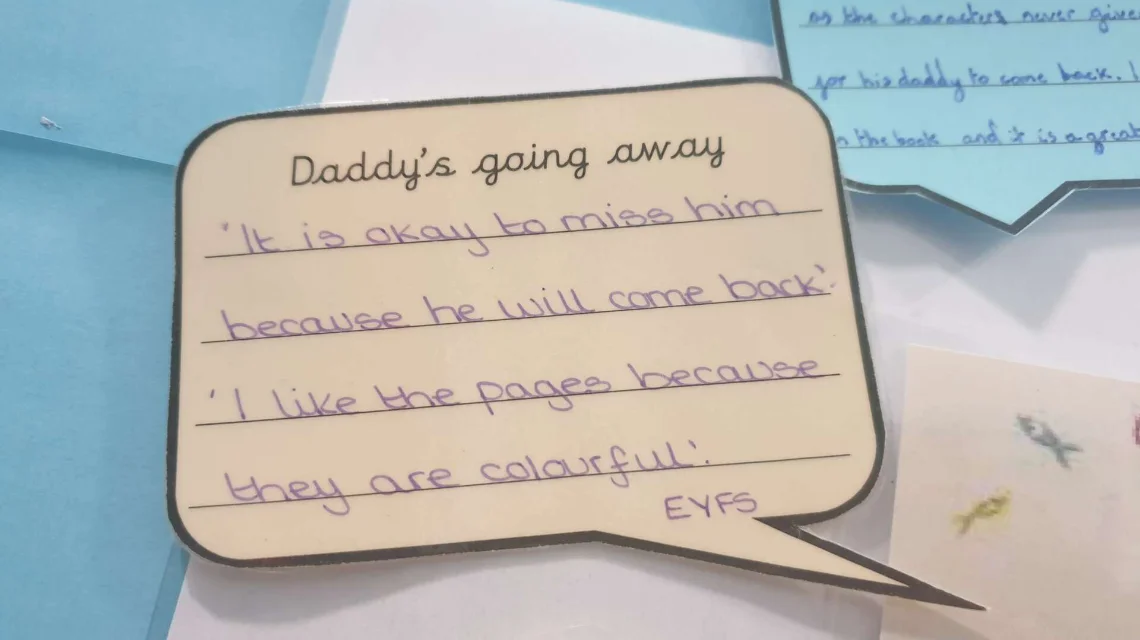 Daddy's going away
'It is okay to miss him
because he will come back'.
'I like the pages because
they are colourful'.
EYFS
as the characters never give
for his daddy to come back. I
the book and it is a great